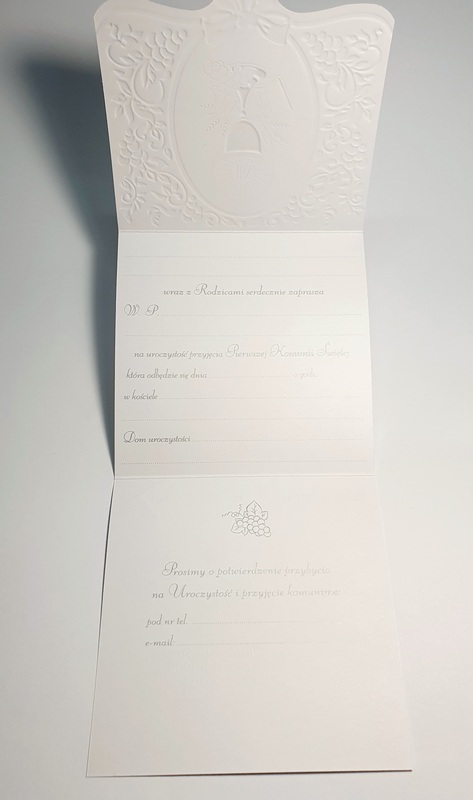 wraz z Rodzicami serdecznie zaprasza
W. P.
na uroczystość przyjęcia Pierwszej Komunii Świętej
która odbędzie się dnia o godz.
w kościele
Dom uroczystości
Prosimy o potwierdzenie przybycia
na Uroczystość i przyjęcie komunijne
pod nr tel.
e-mail: